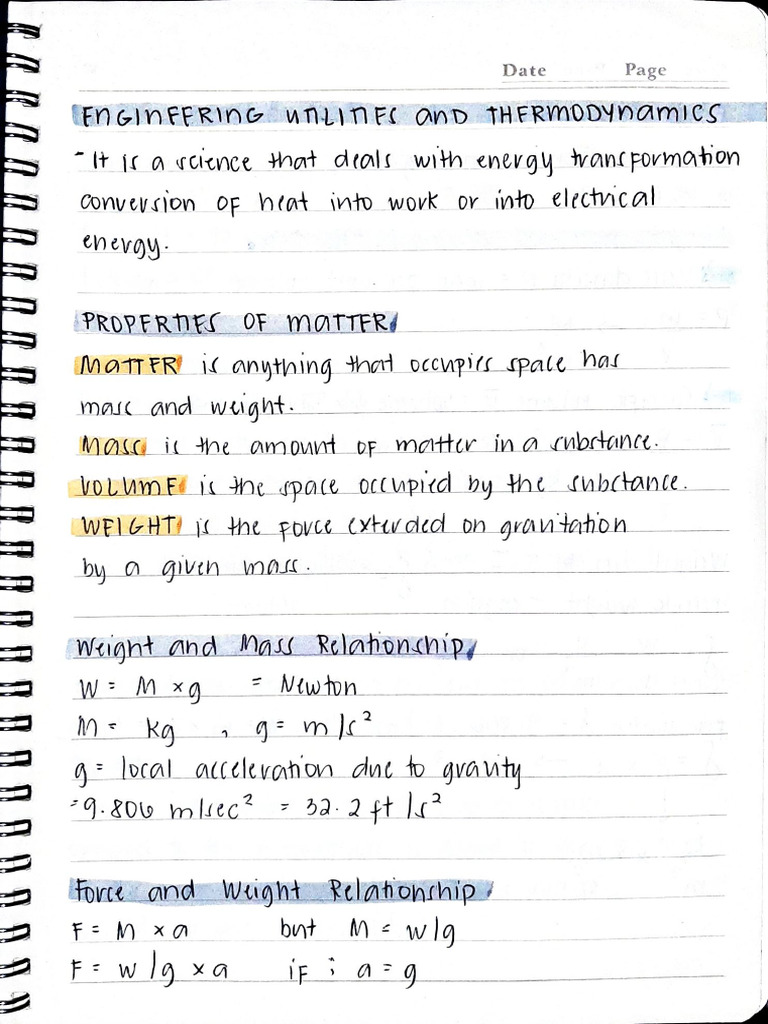 Date Page
ENGINEERING UTILITIES and THERMODYNAMICS
- It is a science that deals with energy transformation
conversion of heat into work or into electrical
energy.
PROPERTIES OF MATTER
MATTER is anything that occupies space has
mass and weight.
MASS is the amount of matter in a substance.
VOLUME is the space occupied by the substance.
WEIGHT is the force exterded on gravitation
by a given mass.
Weight and Mass Relationship
W = M x g = Newton
M = kg , g = m/s²
g = local acceleration due to gravity
= 9.806 m/sec² = 32.2 ft/s²
Force and Weight Relationship
F = M x a but M = w/g
F = w/g x a if ; a = g